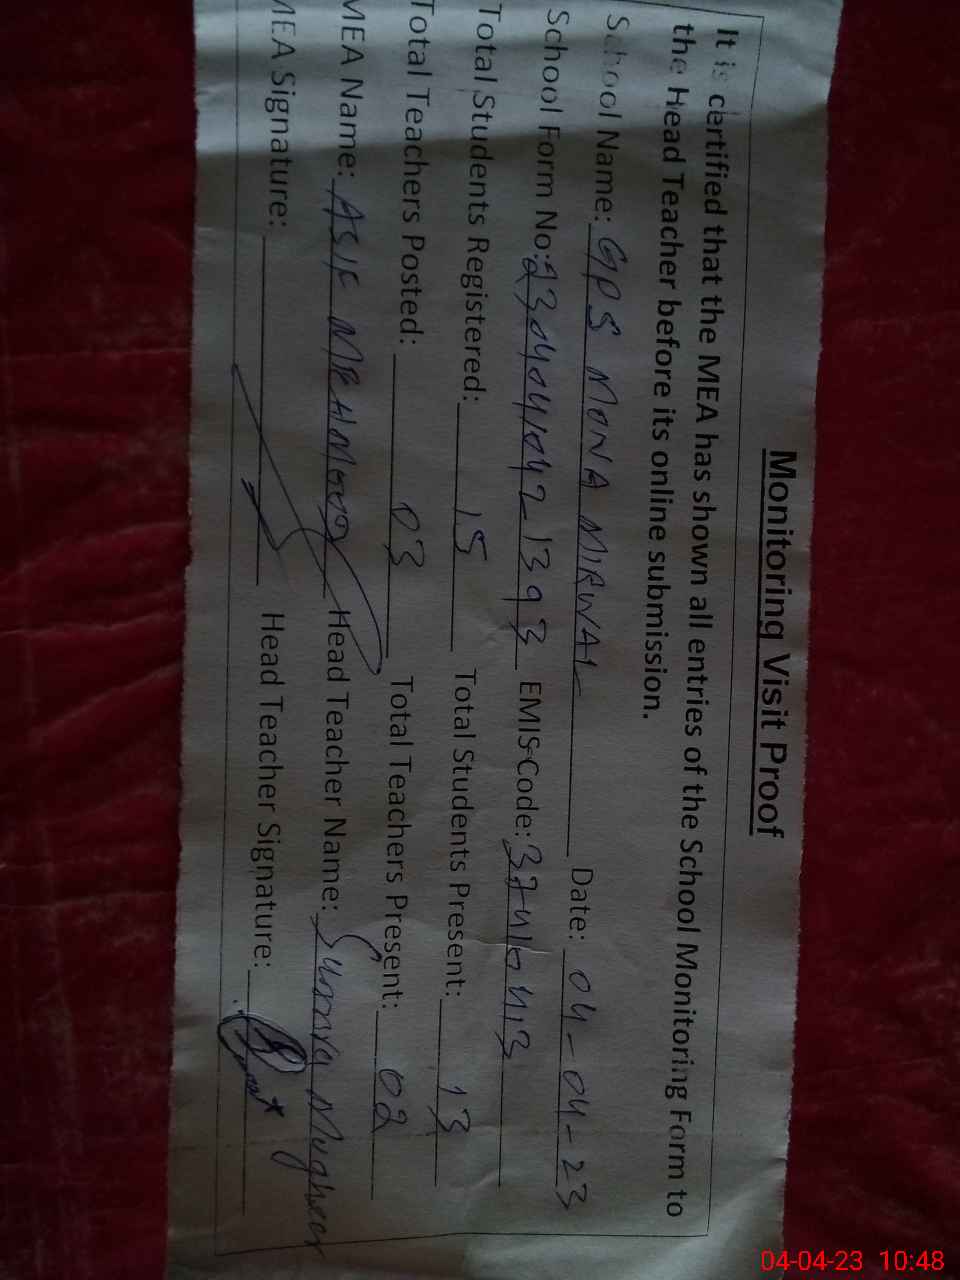 Monitoring Visit Proof
It is certified that the MEA has shown all entries of the School Monitoring Form to
the Head Teacher before its online submission.
School Name: GPS MONA MIRWAL Date: 04-04-23
School Form No: 230404104213 93 EMIS Code: 37416413
Total Students Registered: 15 Total Students Present: 13
Total Teachers Posted: 03 Total Teachers Present: 02
MEA Name: ASIF MEHMOOD Head Teacher Name: Sumra Mugheer
MEA Signature: Head Teacher Signature:
04-04-23 10:48